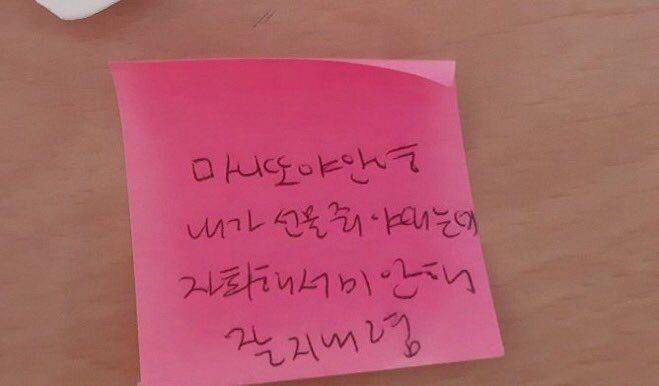 마니또야안녕
내가 선물줘야돼는데
자꾸해서미안해
잘지내렴